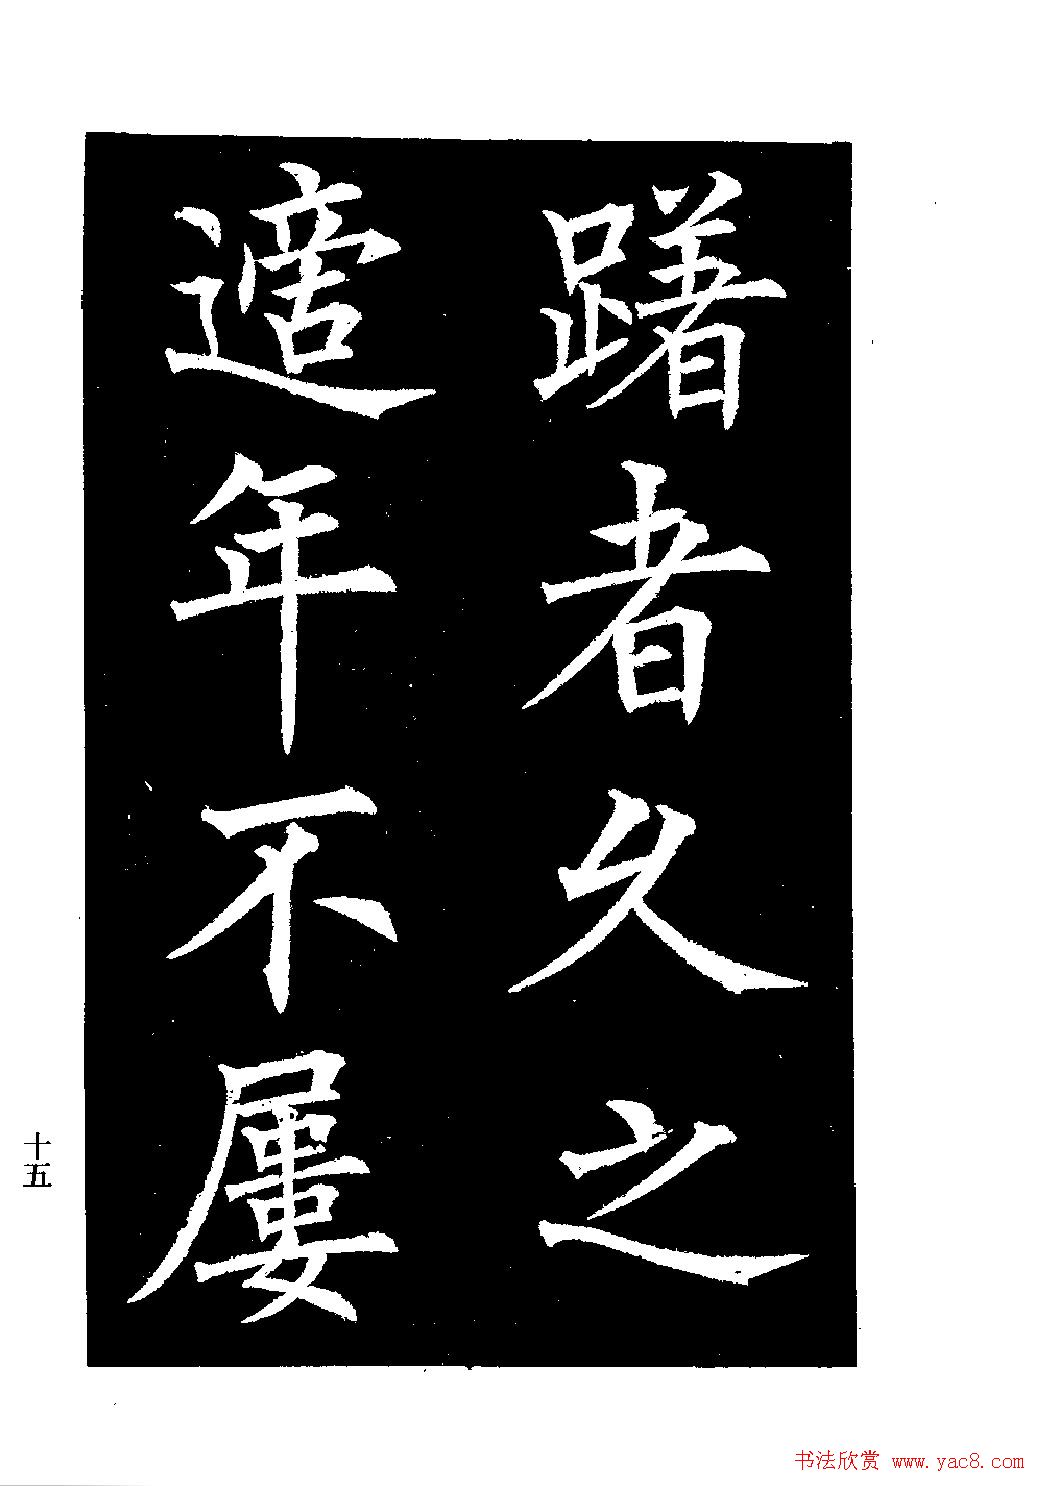 躇者久之
適年不屢
十五
书法欣赏 www.yac8.com